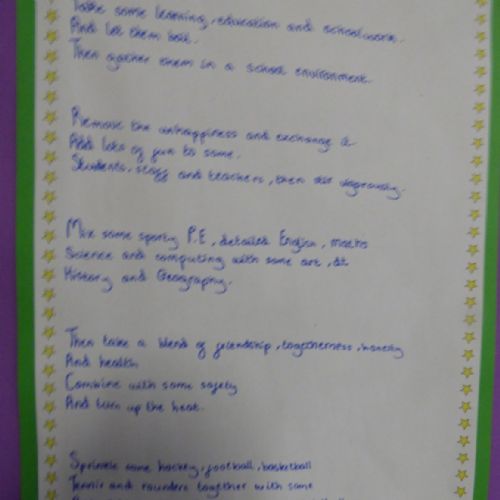 Take some learning, education and schoolwork.
And let them boil.
Then gather them in a school environment.
Remove the unhappiness and exchange it
Add lots of fun to some.
Students, staff and teachers, then stir vigorously.
Mix some sporty P.E, detailed English, maths
Science and computing with some art,
History and Geography.
Then take a blend of friendship, togetherness, honesty
And health
Combine with some safety
And turn up the heat.
Sprinkle some hockey, football, basketball
Tennis and rounders together with some